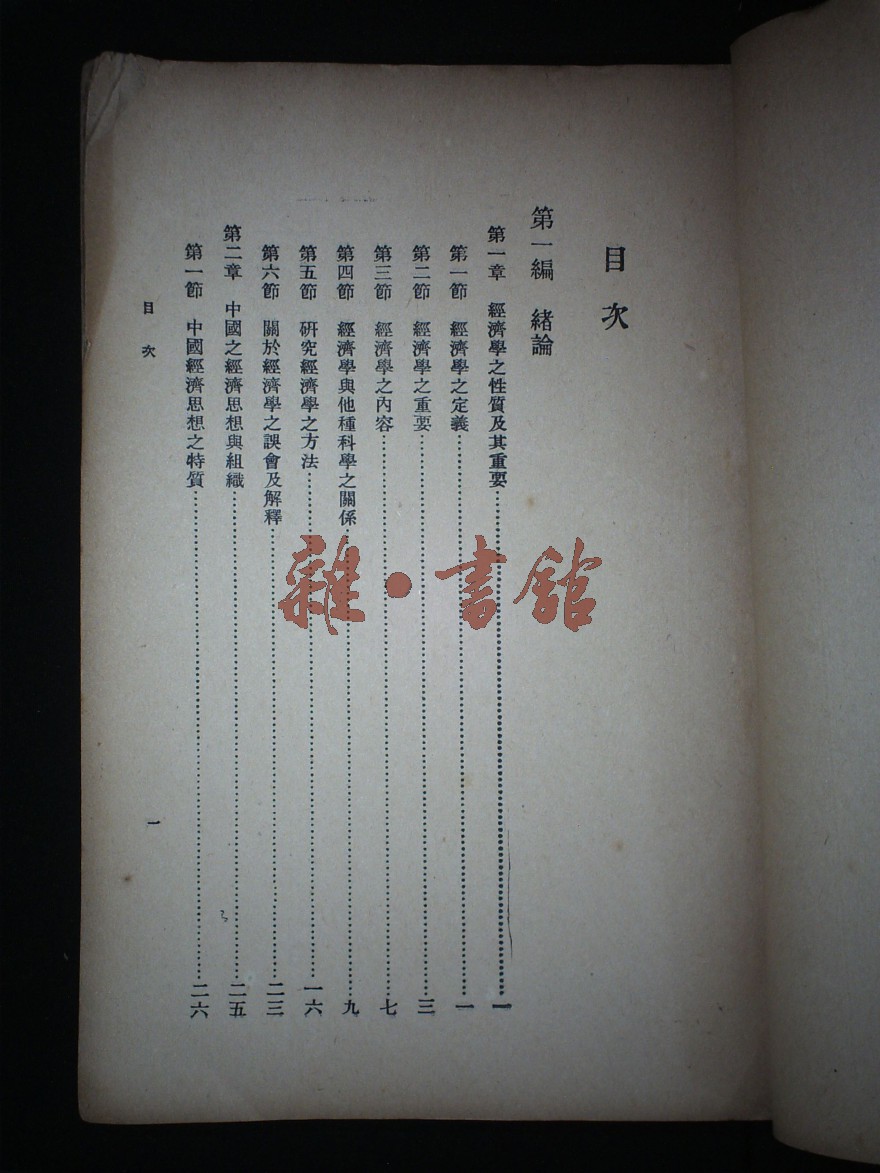 目次
第一編 緒論
第一章 經濟學之性質及其重要……一
第一節 經濟學之定義……一
第二節 經濟學之重要……三
第三節 經濟學之內容……七
第四節 經濟學與他種科學之關係……九
第五節 研究經濟學之方法……一六
第六節 關於經濟學之誤會及解釋……二三
第二章 中國之經濟思想與組織……二五
第一節 中國經濟思想之特質……二六
目次
一
雜·書館